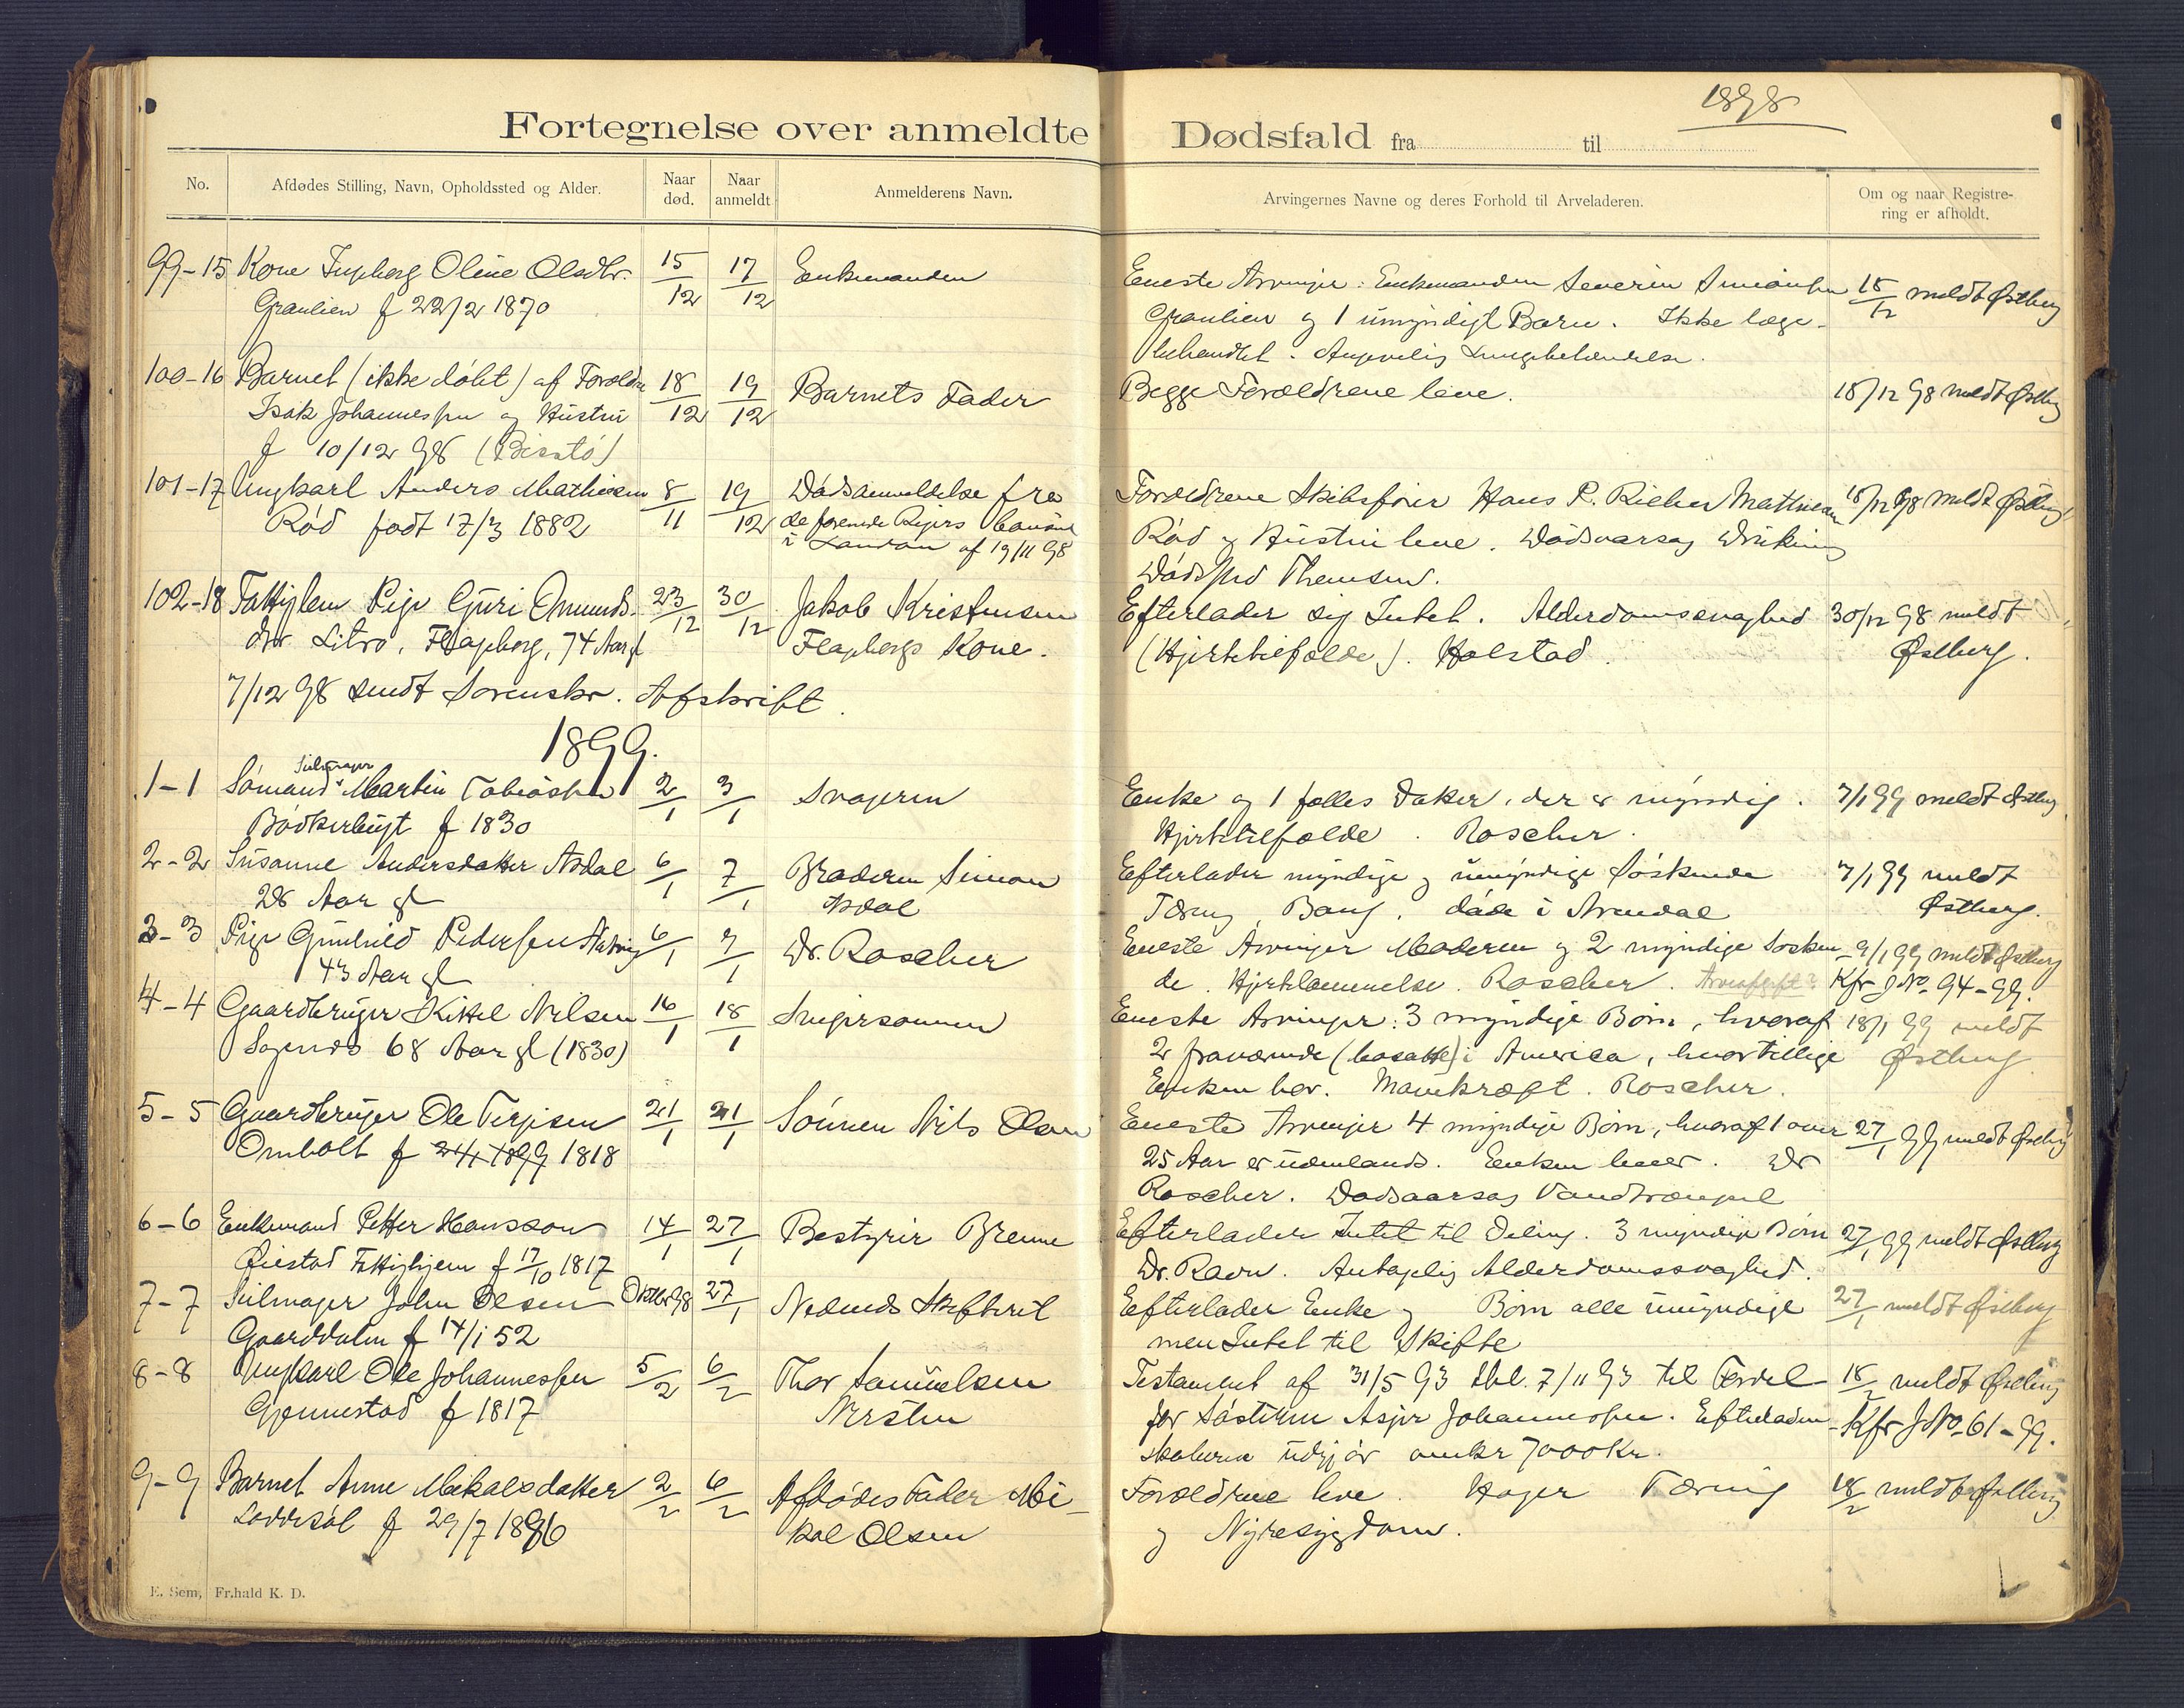 1898
Fortegnelse over anmeldte Dødsfald fra til
No.
Afdødes Stilling, Navn, Opholdssted og Alder.
Naar død.
Naar anmeldt
Anmelderens Navn.
Arvingernes Navne og deres Forhold til Arveladeren.
Om og naar Registrering er afholdt.
99-15 Kone Ingeborg Oline Olsdtr. 15/12 17/12 Enkemanden
Graulien f 22/2 1870
Eneste Arvinger: Enkemanden Severin 15/12 meldt Østberg
Graulien og 1 umyndigt Barn. Ikke læge-
behandlet.
100-16 Barnet (ikke døbt) af Forældre 18/12 19/12 Barnets Fader
Isak Johannessen og Hustru
f 10/12 98
Begge Forældrene leve. 18/12 98 meldt Østberg
101-17 Ungkarl Anders Mathiesen 8/11 19/12 Dødsanmeldelse fra
Rød født 17/3 1882 de forenede Rigers
i London af 19/11 98
Forældrene Skibsfører Hans P. Mathiesen 18/12 98 meldt Østberg
Rød og Hustru leve. Dødsaarsag Drukning
Dødssted Themsen.
102-18 Fattiglem Pige Guri Omunds- 23/12 30/12 Jakob Kristensen
dtr Litro, Flageborg, 74 Aar gl Flagebergs Kone.
Efterlader sig Intet. Alderdomssvaghed 30/12 98 meldt
(Hjertetilfælde). Holstad Østberg.
7/12 98 sendt Sorenskr. Afskrift.
1899.
1-1 Sømand Seilmager Martin Tobiassen 2/1 3/1 Svogeren
Bødkerbugt f 1830
Enke og 1 fælles Datter, der er myndig. 7/1 99 meldt Østberg
Hjertetilfælde. Roscher.
2-2 Susanne Andersdatter Asdal 6/1 7/1 Broderen Simon
28 Aar gl Asdal
Efterlader myndige og umyndige Søskende 7/1 99 meldt
Tæring, Bang, døde i Arendal Østberg.
3-3 Pige Gunhild Pedersen 6/1 9/1 Dr. Roscher
43 Aar gl
Eneste Arvinger Moderen og 2 myndige Søsken- 9/1 99 meldt Østberg
de. Hjertelammelse. Roscher. Arveafgift? Kfr JNo 94-99.
4-4 Gaardbruger Kittel Nilsen 16/1 18/1 Svigersønnen
68 Aar gl (1830)
Eneste Arvinger: 3 myndige Børn, hvoraf 18/1 99 meldt
2 fraværende (bosatte) i America, hvor tillige Østberg
Enken bor. Mavekræft. Roscher.
5-5 Gaardbruger Ole Terjesen 21/1 21/1 Sønnen Nils Olsen
Ombolt f 24/1 1899 1818
Eneste Arvinger 4 myndige Børn, hvoraf 1 over 27/1 99 meldt Østberg
25 Aar er udenlands. Enken lever. Dr
Roscher. Dødsaarsag
6-6 Enkemand Petter Hansson 14/1 27/1 Bestyrer Brenne
Øiestad Fattighjem f 17/10 1817
Efterlader Intet til Deling. 3 myndige Børn 27/1 99 meldt Østberg
Dr. Ravn. Antagelig Alderdomssvaghed.
7-7 Seilmager John Olsen Oktbr 98 27/1 Nedenes Skifteret
Gaarddalen f 14/1 52
Efterlader Enke og Børn alle umyndige 27/1 meldt Østberg
men Intet til Skifte
8-8 Ungkarl Ole Johannessen 5/2 6/2 Thor Samuelsen
Gjennestad f 1817 Nersten
Testament af 31/5 93 tbl. 7/11 93 til Fordel 18/2 meldt Østberg
for Søsteren Asjer Johannesen. Efterladen- Kfr JNo-61-99.
skaberne udgjør omkr 7000 Kr.
9-9 Barnet Anne Mikalsdatter 2/2 6/2 Afdødes Fader Mi-
Løddesøl f 29/7 1896 kal Olsen
Forældrene leve. Høyer Tæring 18/2 meldt Østberg
og Nyresygdom.
E. Sem, Fr.hald K. D.